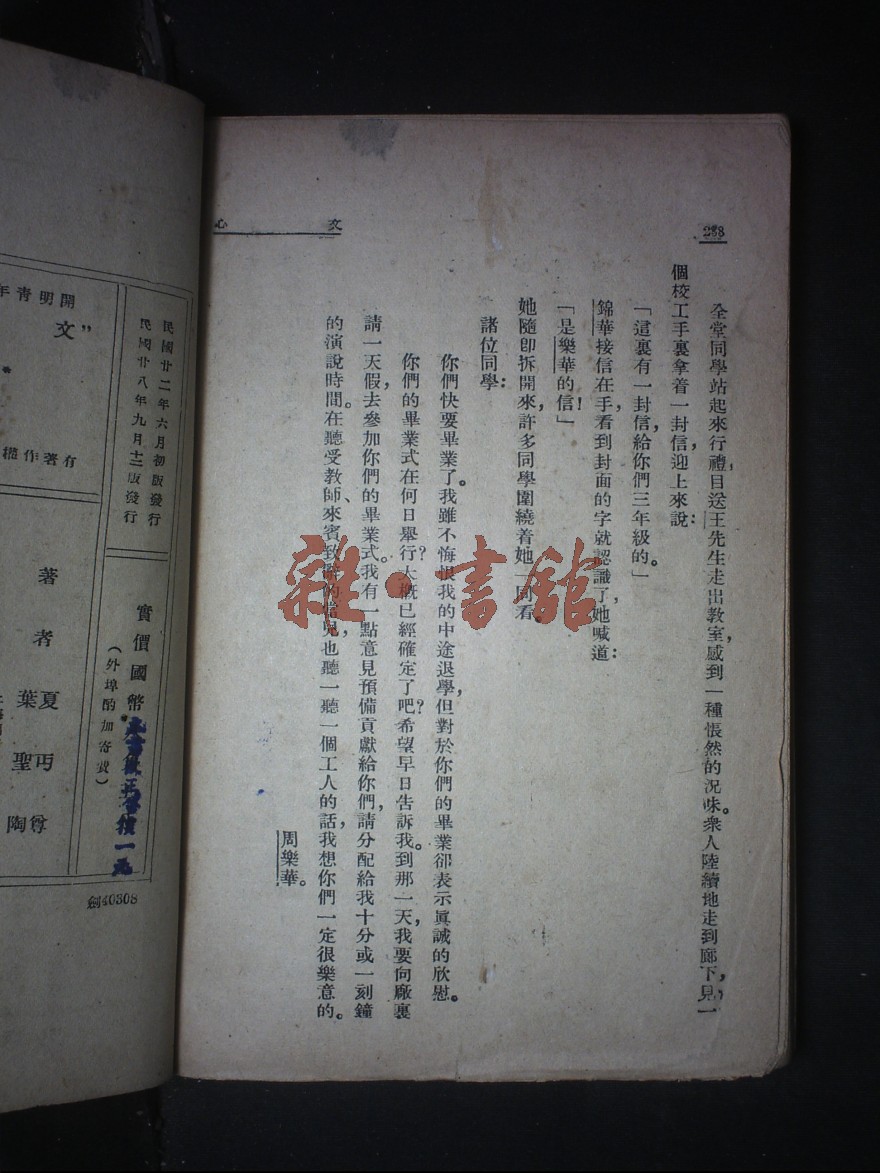 288
文心
全堂同學站起來行禮，目送王先生走出教室，感到一種悵然的況味。衆人陸續地走到廊下，見一
個校工手裏拿着一封信，迎上來說：
「這裏有一封信給你們三年級的。」
錦華接信在手，看到封面的字就認識了，她喊道：
「是樂華的信！」
她隨卽拆開來，許多同學圍繞着她一同看。
諸位同學：
你們快要畢業了。我雖不悔恨我的中途退學，但對於你們的畢業卻表示眞誠的欣慰。
你們的畢業式在何日舉行？大概已經確定了吧？希望早日告訴我。到那一天，我要向廠裏
請一天假，去參加你們的畢業式。我有一點意見預備貢獻給你們，請分配給我十分或一刻鐘
的演說時間。在聽受教師、來賓致辭的當兒，也聽一聽一個工人的話，我想你們一定很樂意的。
周樂華。
雜·書館
民國廿二年六月初版發行
民國廿八年九月十二版發行
實價國幣
（外埠酌加寄費）
開明青年
"文
有著作權
著者
夏丏尊
葉聖陶
劍40308